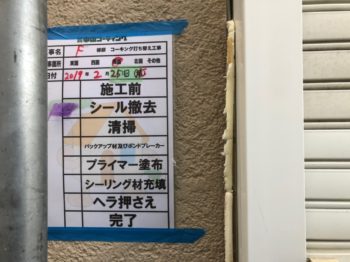 事名 F 様邸 コーキング打ち替え工事
事箇所 東面 西面 南面 北面 その他
日付 2019年2月25日
施工前
シール撤去
清掃
バックアップ材及びボンドブレーカー
プライマー塗布
シーリング材充填
ヘラ押さえ
完了